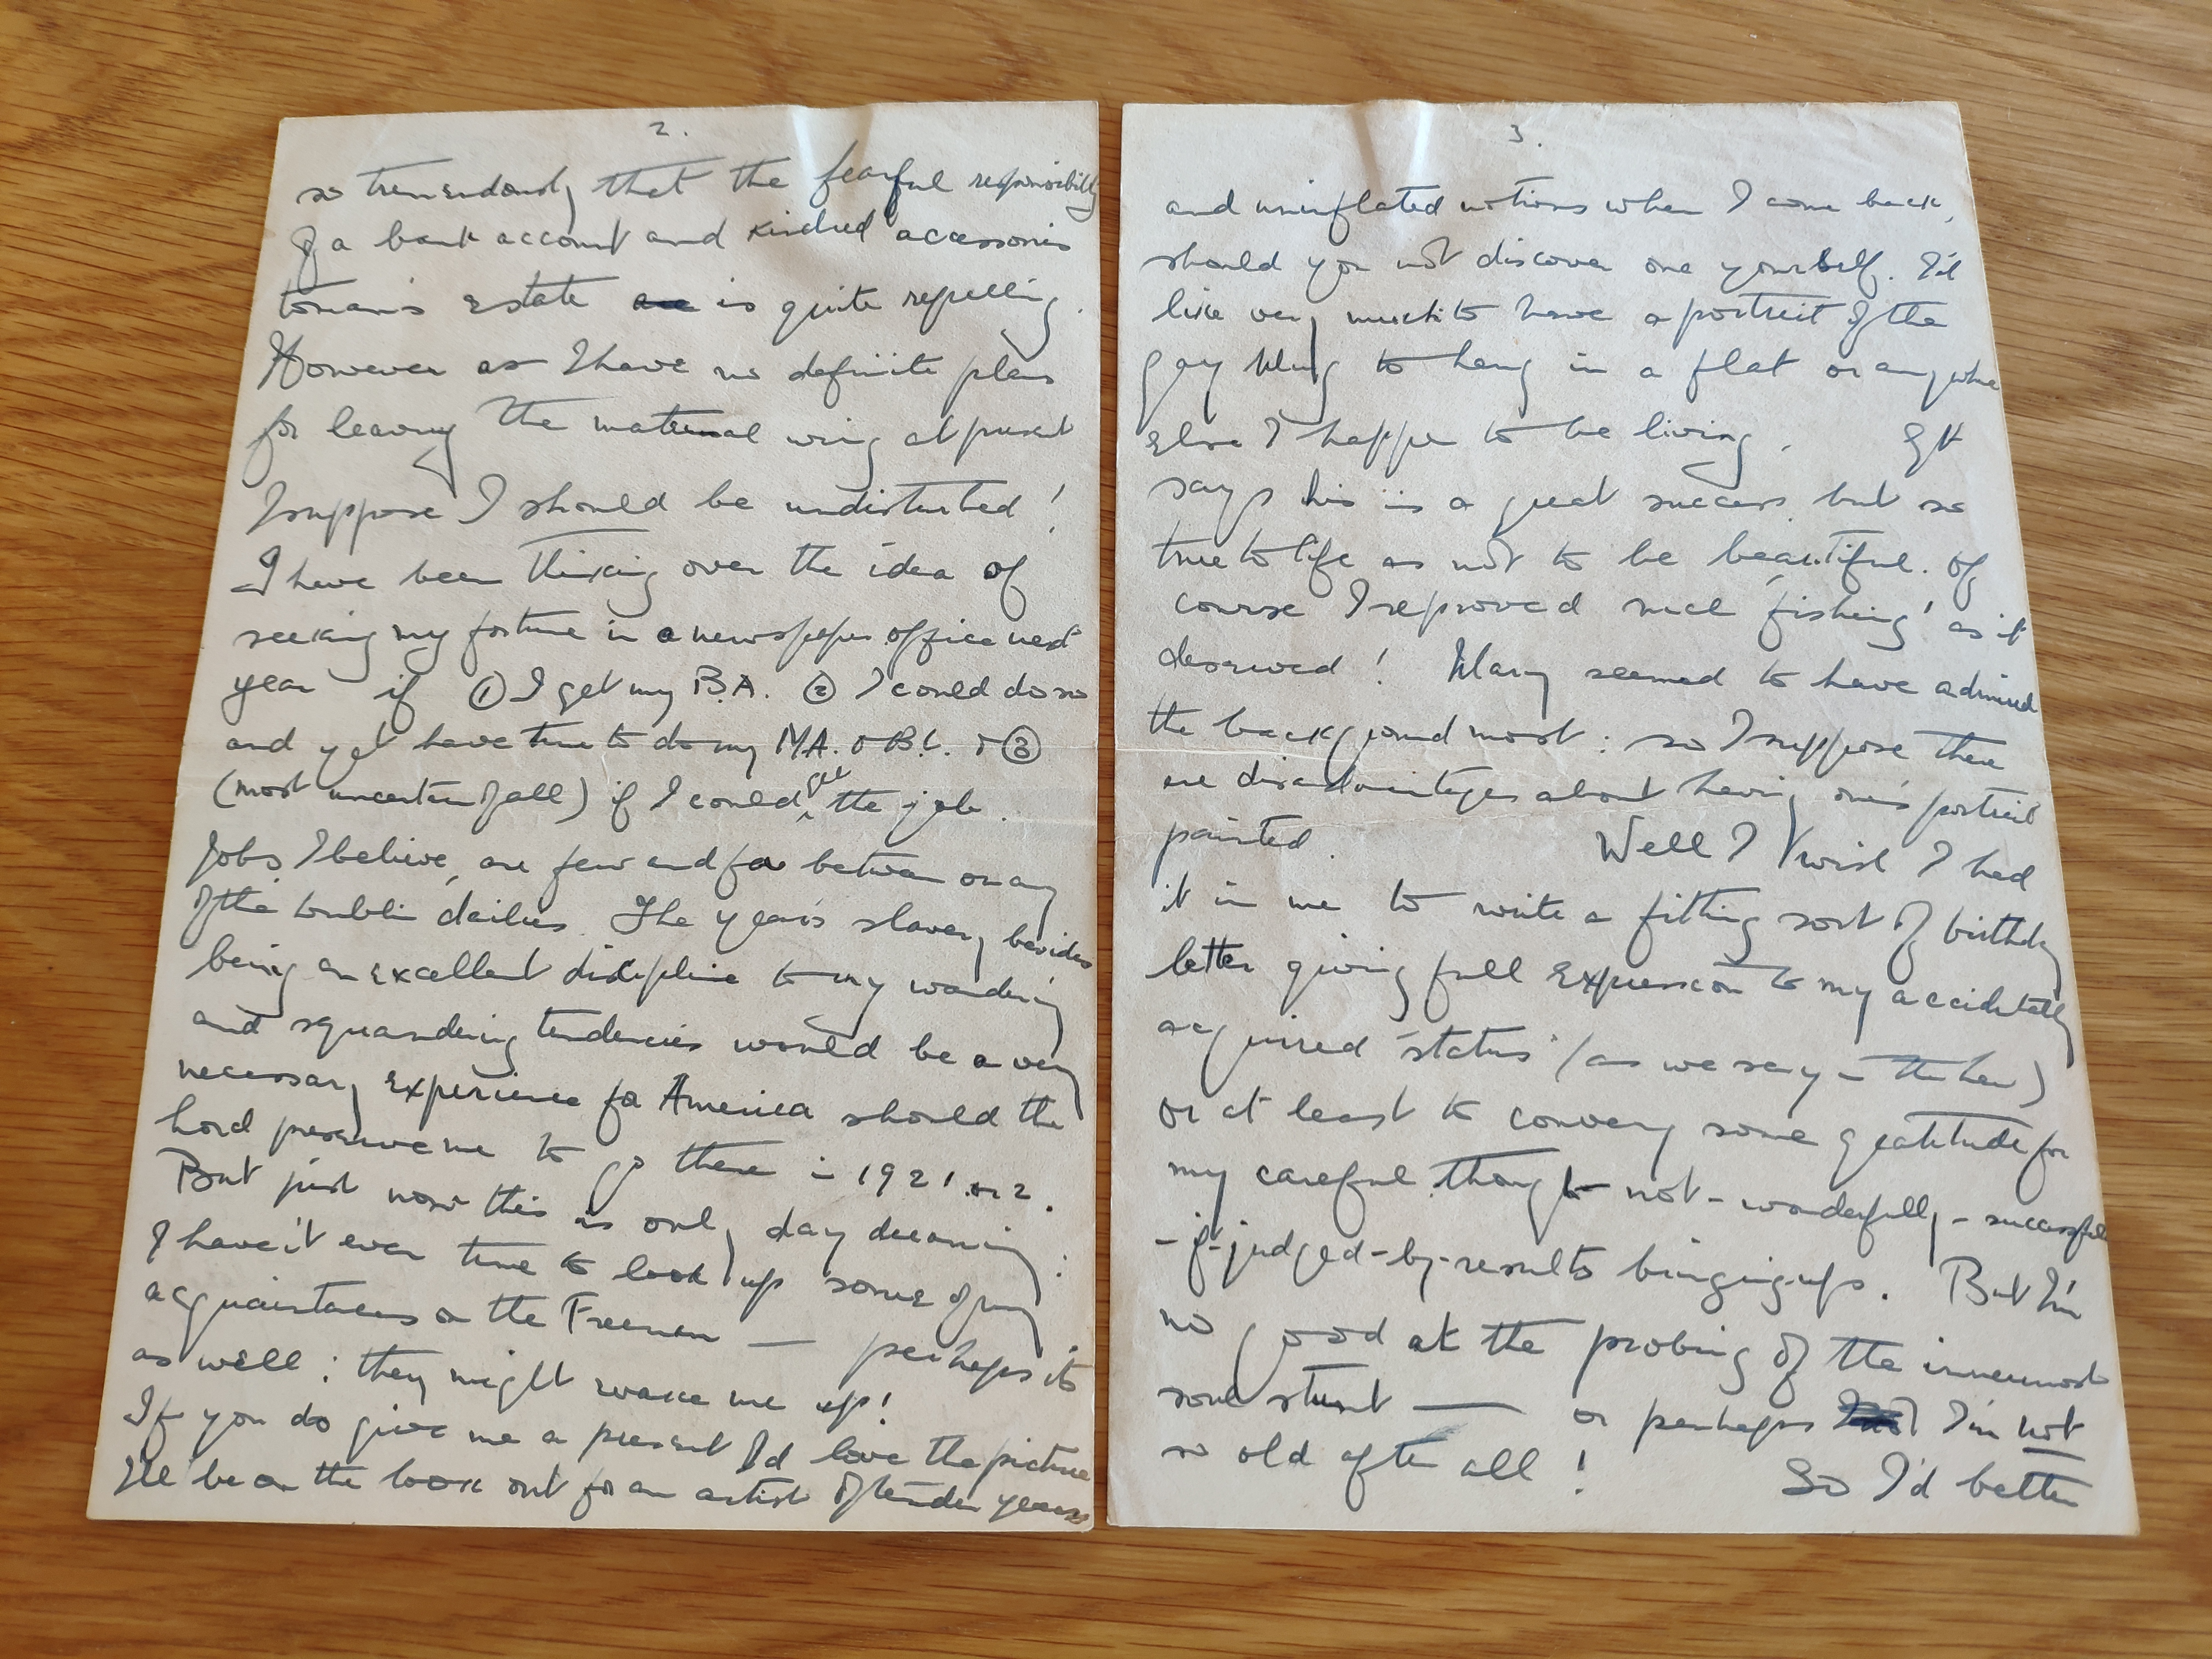 2.
so tremendously that the fearful responsibility
of a bank account and kindred accessories
to man's estate are is quite repelling.
However as I have no definite plans
for leaving the maternal wing at present
I suppose I should be undisturbed!
I have been thinking over the idea of
seeking my fortune in a newspaper office next
year if ① I get my B.A. ② I could do so
and yet have time to do my M.A. or B.L. & ③
(most uncertain of all) if I could get the job.
Jobs, I believe, are few and far between on any
of the Dublin dailies. The year's slavery besides
being an excellent discipline to my wandering
and squandering tendencies would be a very
necessary experience for America should the
Lord preserve me to go there in 1921 or 2.
But just now this is only day dreaming:
I haven't even time to look up some of my
acquaintances on the Freeman — perhaps it's
as well: they might wake me up!
If you do give me a present I'd love the picture
I'll be on the look out for an artist of tender years
3.
and uninflated notions when I come back,
should you not discover one yourself. I'd
like very much to have a portrait of the
gay thing to hang in a flat or anywhere
else I happen to be living.
says his is a great success but so
true to life as not to be beautiful. Of
course I reproved such 'fishing' as it
deserved! Mary seemed to have admired
the background most: so I suppose there
are disadvantages about having one's portrait
painted. Well I wish I had
it in me to write a fitting sort of birthday
letter giving full expression to my accidentally
acquired 'status' (as we say in the law)
or at least to convey some gratitude for
my careful though-not-wonderfully-successful
-if-judged-by-results bringing up. But I'm
no good at the probing of the innermost
soul stunt — or perhaps I'm not
so old after all! So I'd better